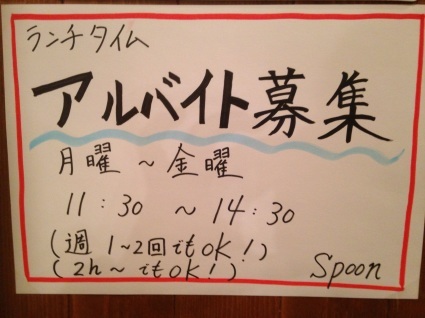 ランチタイム
アルバイト募集
月曜 ~ 金曜
11:30 ~ 14:30
(週1~2回でもOK!)
(2h~でもOK!)
Spoon